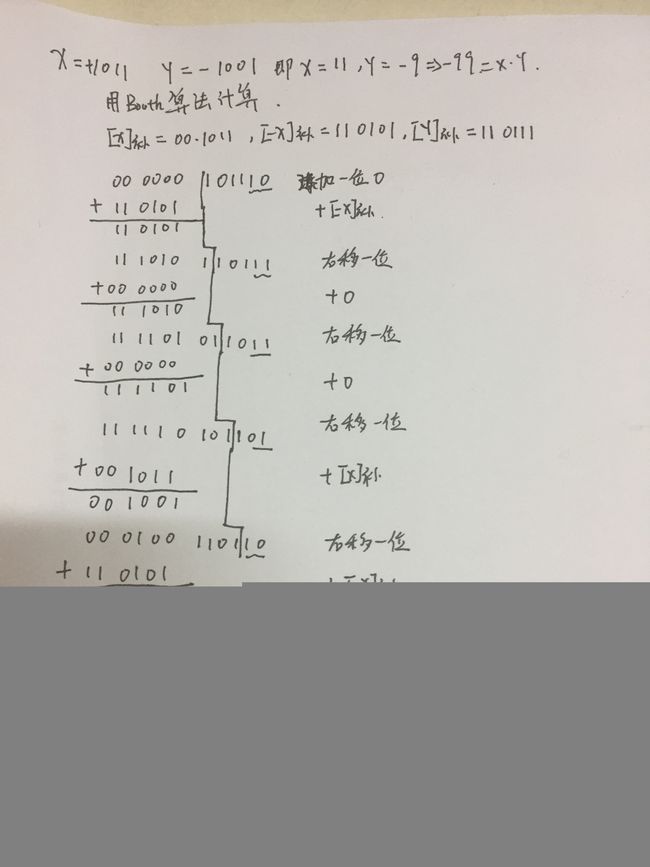 X=+1011 Y=-1001 即 X=11,Y=-9⇒-99=X·Y.
用Booth算法计算.
[X]补=00.1011,[-X]补=110101,[Y]补=110111
00 0000 101110 添加一位0
+ 11 0101 +[-X]补.
11 0101
11 1010 110111 右移一位
+00 0000 +0
11 1010
11 1101 011011 右移一位
+00 0000 +0
11 1101
11 1110 101101 右移一位
+00 1011 +[X]补.
00 1001
00 0100 110110 右移一位
+ 11 0101